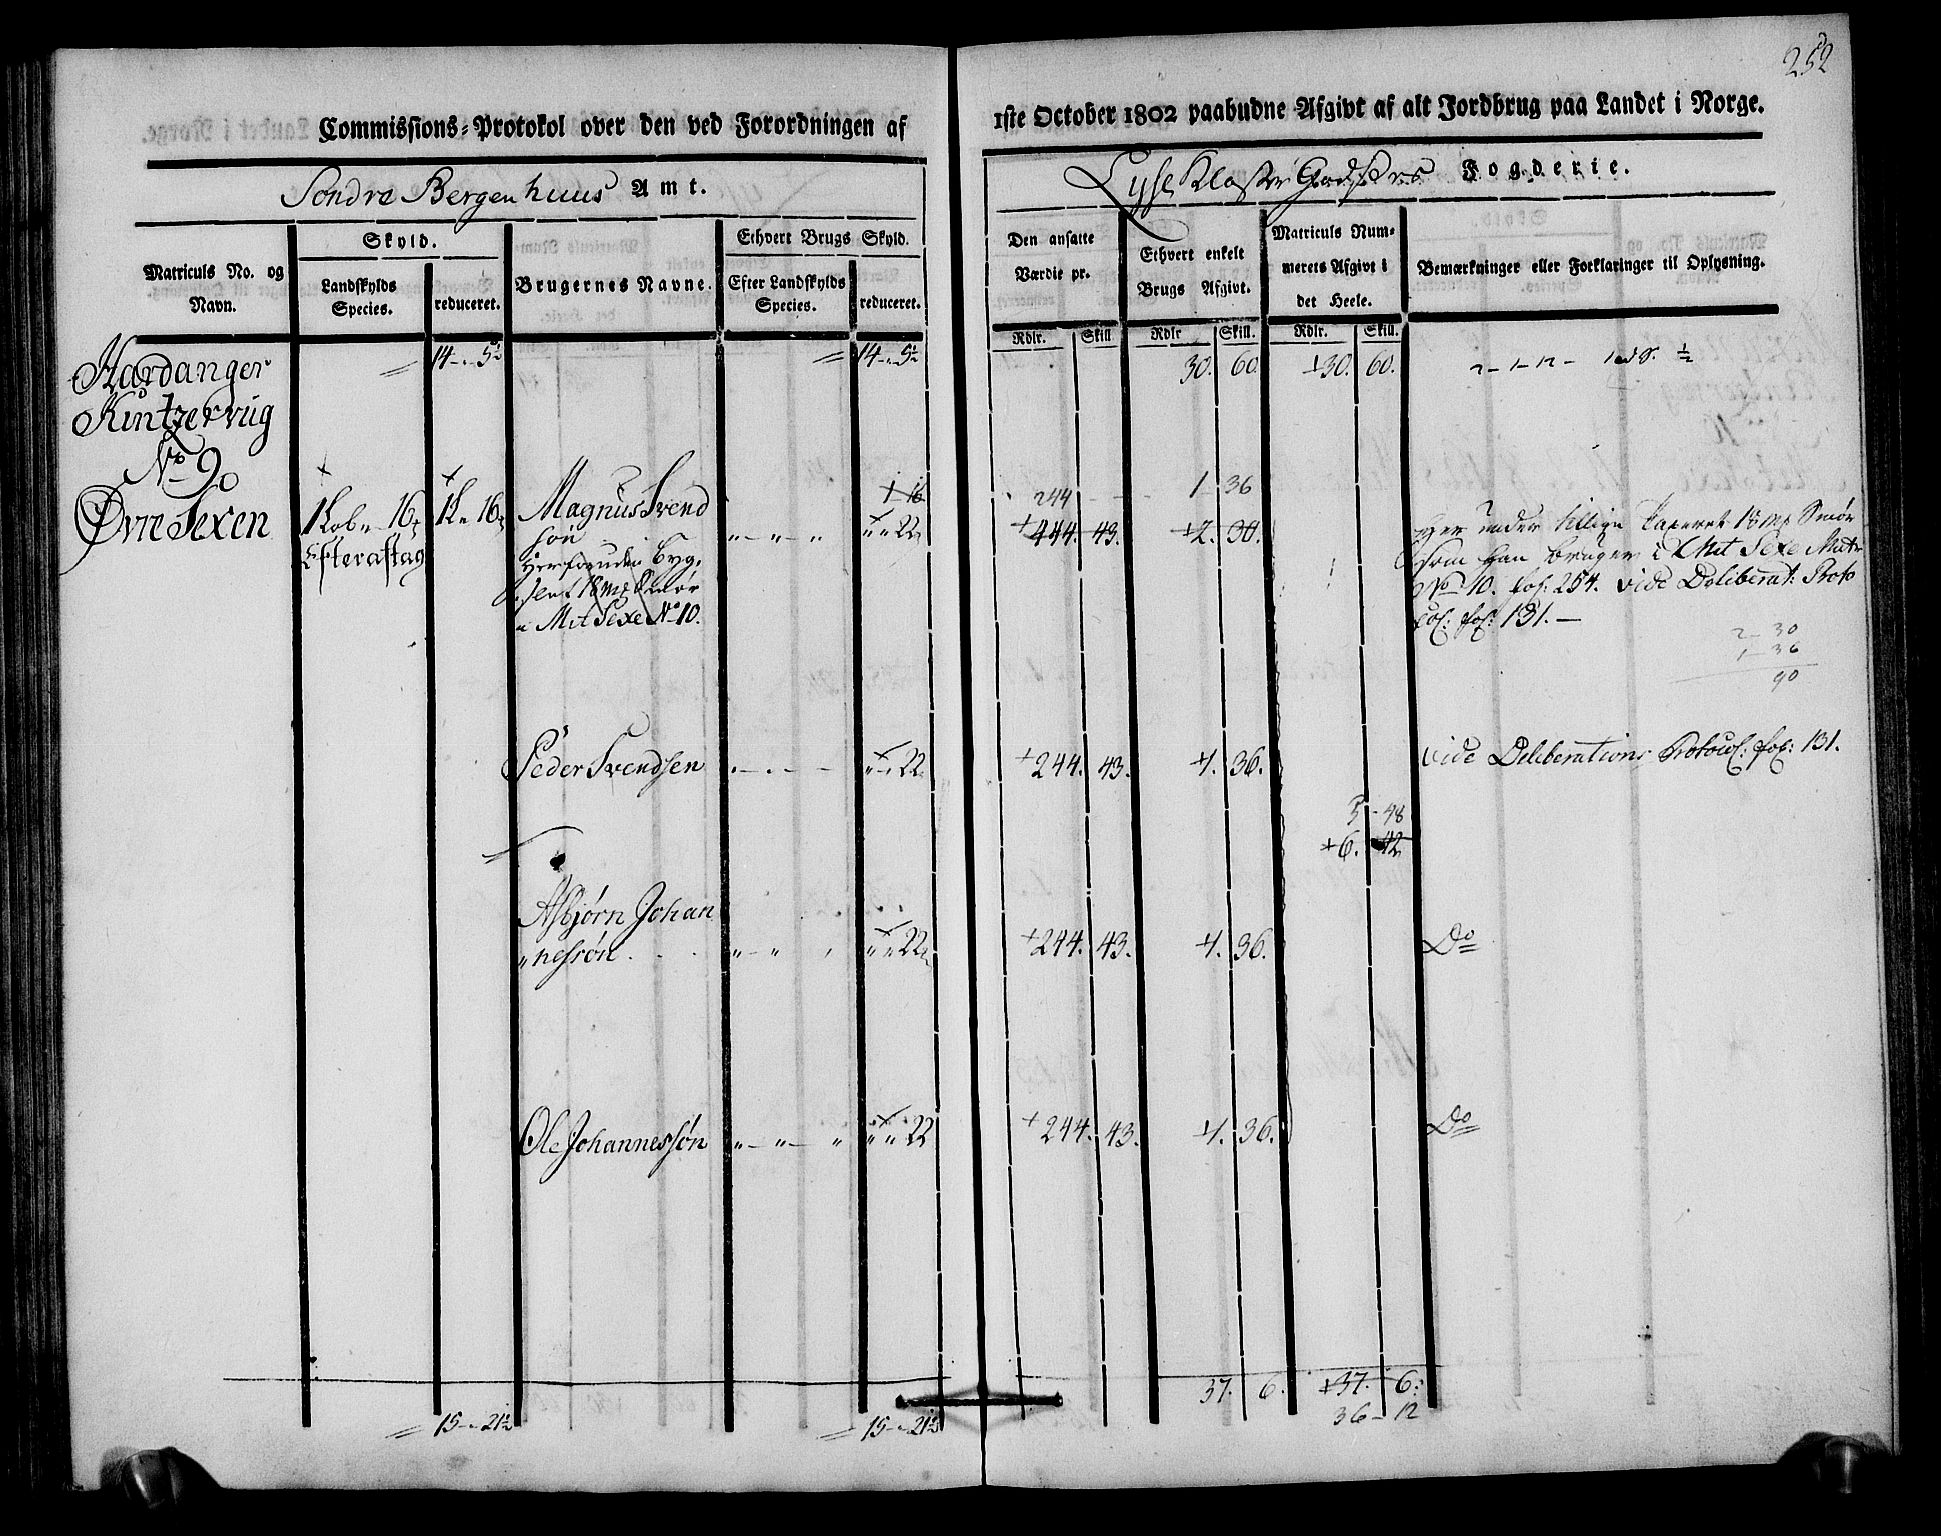 252
Commissions-Protokol over den ved Forordningen af
1ste October 1802 paabudne Afgivt af alt Jordbrug paa Landet i Norge.
Søndre Bergenhuus Amt.
Lyse Kloster Godsets Fogderie.
Matriculs No. og Navn.
Skyld.
Landskylds Species.
reduceret.
Brugernes Navne.
Ethvert Brugs Skyld.
Efter Landskylds Species.
reduceret.
Den ansatte Værdie pr.
Ethvert enkelt Brugs Afgivt.
Matriculs Nummerets Afgivt i det Heele.
Bemærkninger eller Forklaringer til Oplysning.
Rdlr. Skill. Rdlr Skill. Rdlr. Skill.
14 - " 5½ 14 - " 5½ 30. 60. +30. 60.
Hardanger
Kintzervug
No 9.
Øvre Sexen
1 Lob " 16
Efteraftag
1 L " 16
Magnus Svend
søn
Herforuden byg,
selt 18 mp Smør
" Mit Sexe No 10.
1 - 16
" " 22
244 1 36
+444. 43. +2. 30.
Her under tillige Taxeret 18 mp Smør
som han bruger i Mit Sexe Matr
No 10. fol: 254. vide Deliberat. Proto
col: fol: 131. —
2 - 30
1 - 36
90
Peder Svendsen " " 22 +244. 43. +1. 36. vide Deliberations Protocol: fol: 131.
5 - 48
+6. 42
Asbjørn Johan
"nessøn " " 22 +244. 43. +1. 36. Do
Ole Johannessøn " " 22 +244. 43. +1. 36. Do
37. 6. +37. 6:
15 - " 21½ 15 - " 21½ 36 - 12